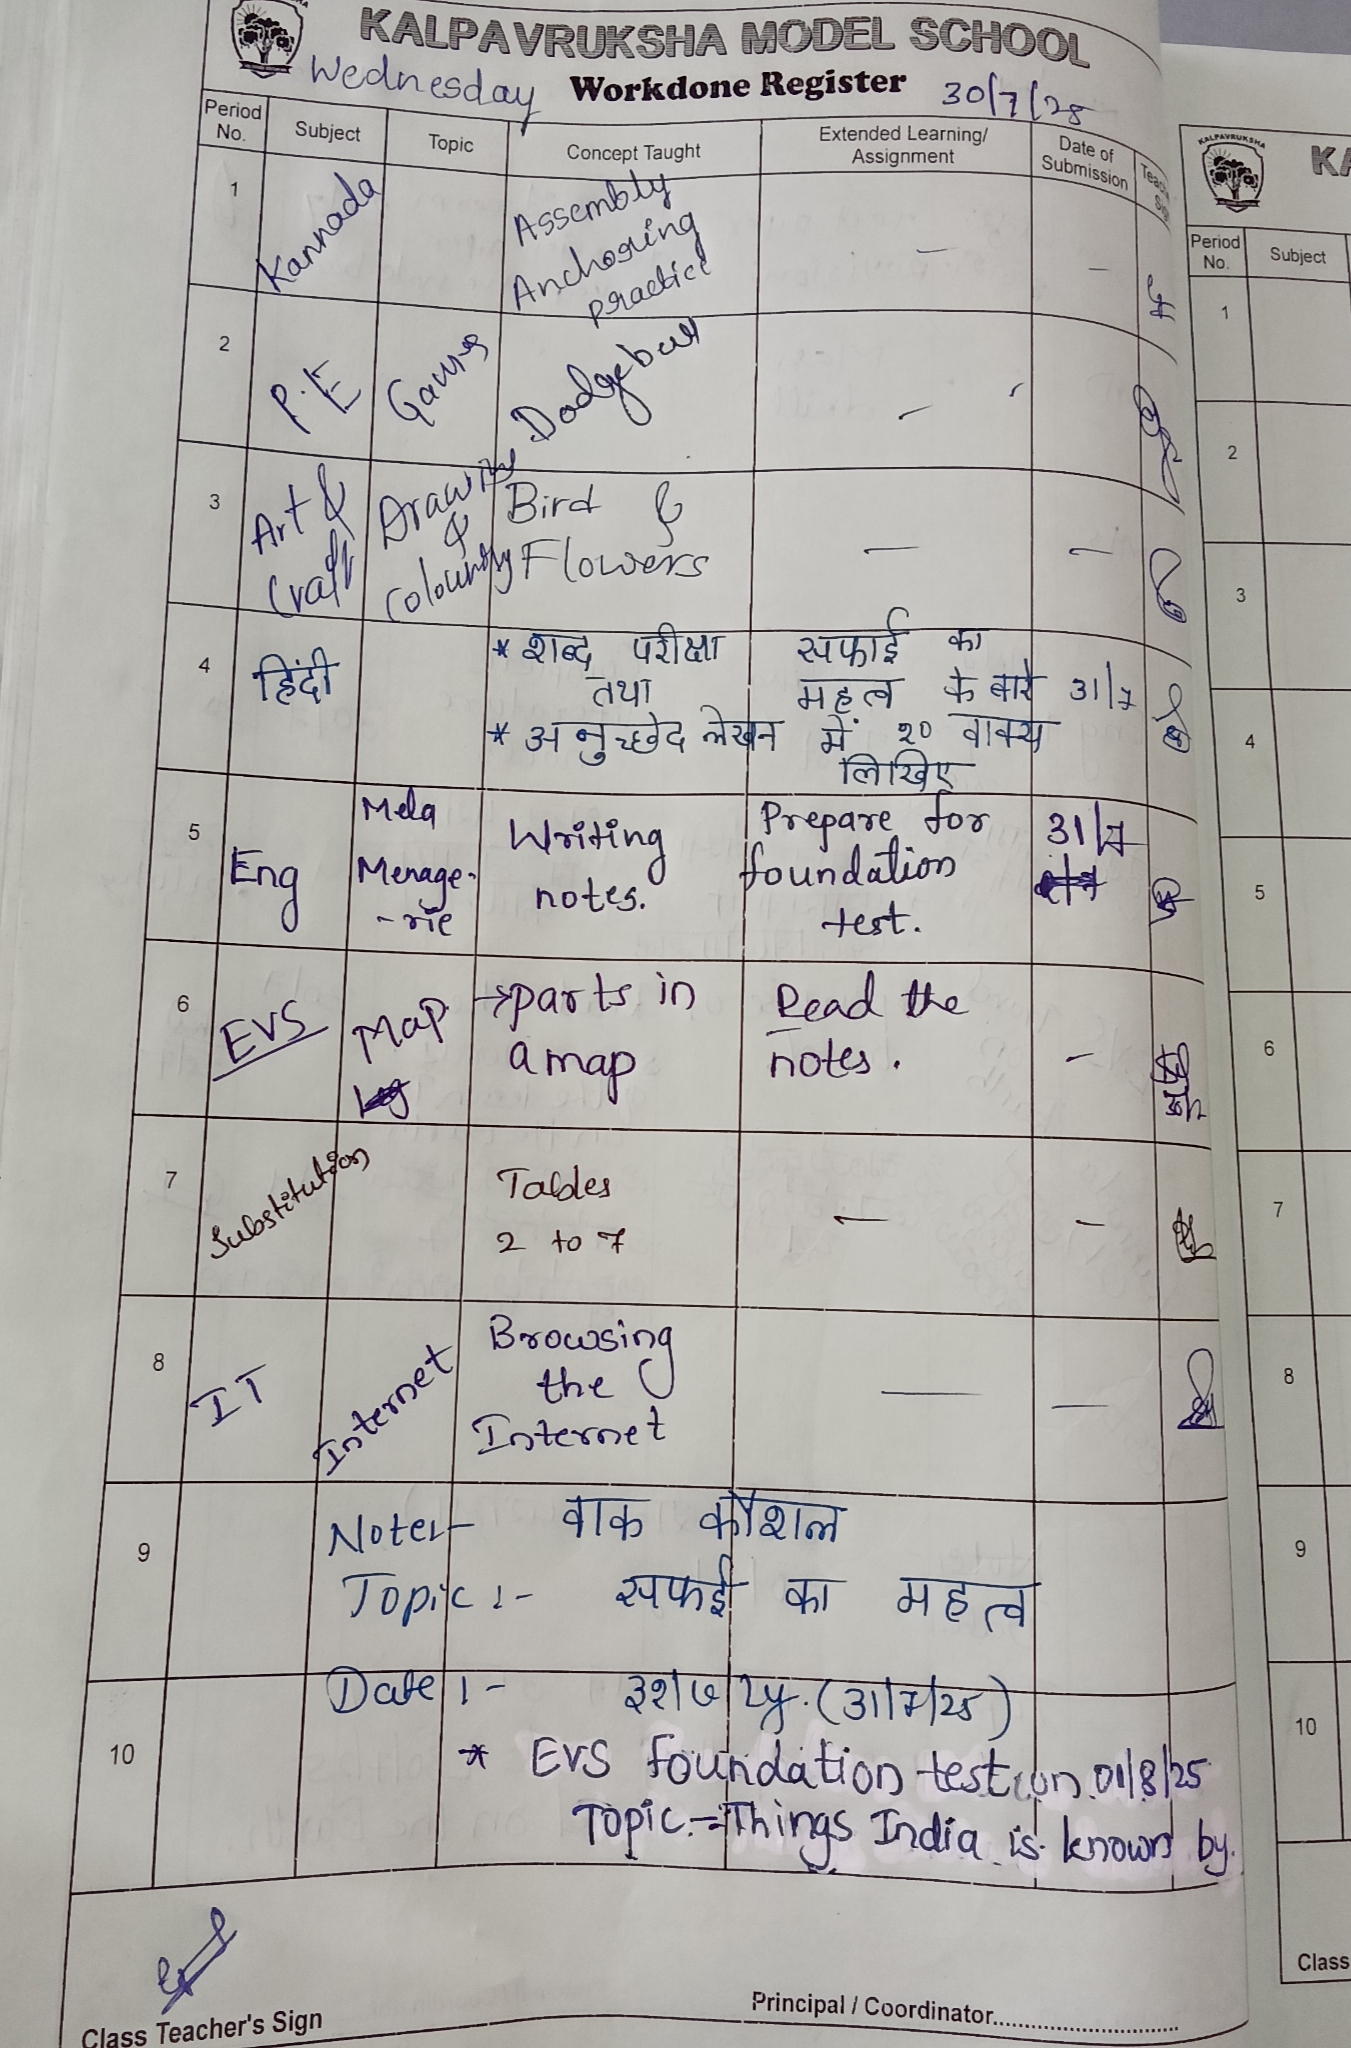 KALPAVRUKSHA MODEL SCHOOL
Wednesday Workdone Register 30/7/25
Period No. Subject Topic Concept Taught Extended Learning/ Assignment Date of Submission
1 Kannada Assembly Anchoring practice - -
2 P.E Games Dodgeball -
3 Art & Craft Drawing & colouring Bird & Flowers - -
4 हिंदी * शब्द परीक्षा तथा * अनुच्छेद लेखन सफाई का महत्व के बारे में १० वाक्य लिखिए 31/7
5 Eng Mela Menage-rie Writing notes. Prepare for foundation test. 31/7
6 EVS Map → parts in a map Read the notes. -
7 Substitution Tables 2 to 7 - -
8 IT Internet Browsing the Internet - -
9 Note:- वाक कौशल
Topic :- सफई का महत्व
Date :- ३१/७/२५. (31/7/25)
10 * EVS foundation test on 01/8/25
Topic:- Things India is known by.
Class Teacher's Sign
Principal / Coordinator
KALPAVRUKSHA
KA
Period No. Subject
1
2
3
4
5
6
7
8
9
10
Class